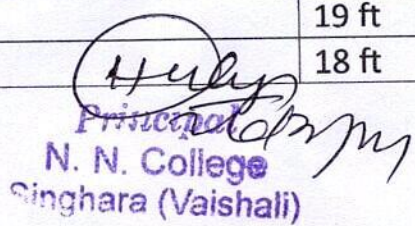 19 ft
18 ft
Principal
N. N. College
Singhara (Vaishali)